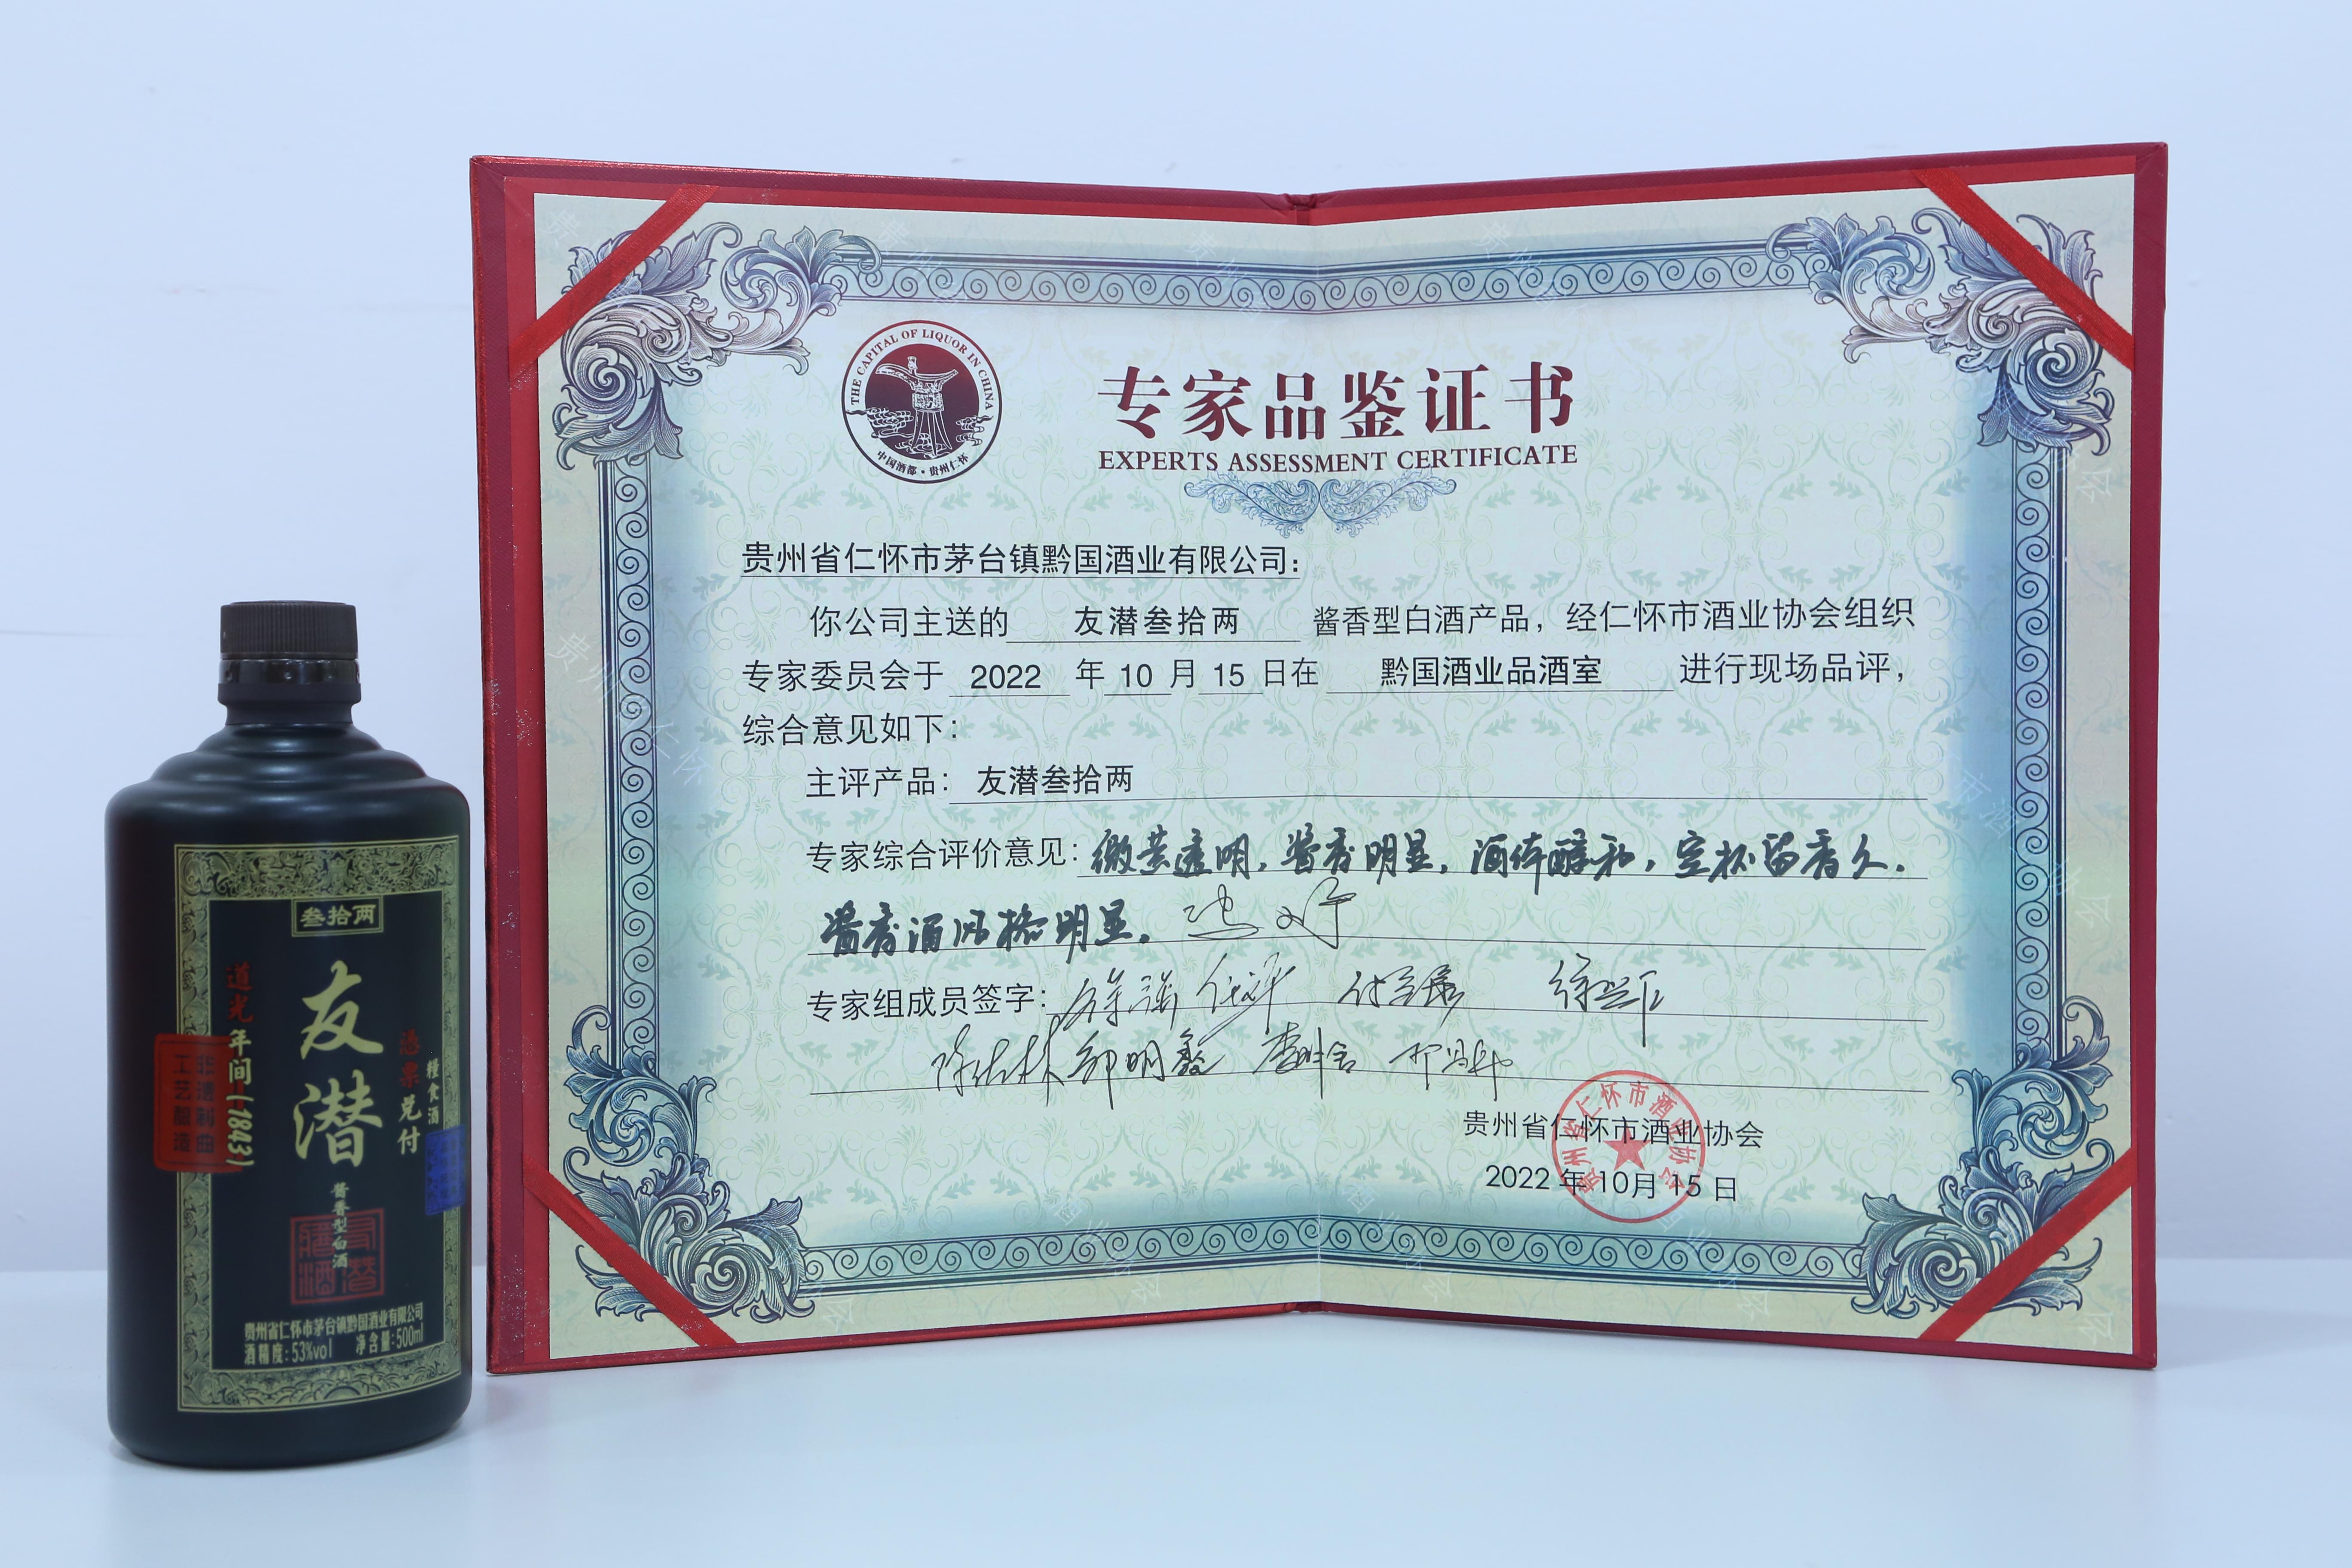 THE CAPITAL OF LIQUOR IN CHINA
中国酒都·贵州仁怀
专家品鉴证书
EXPERTS ASSESSMENT CERTIFICATE
贵州省仁怀市茅台镇黔国酒业有限公司：
你公司主送的 友潜叁拾两 酱香型白酒产品，经仁怀市酒业协会组织
专家委员会于 2022 年 10 月 15 日在 黔国酒业品酒室 进行现场品评，
综合意见如下：
主评产品： 友潜叁拾两
专家综合评价意见：微黄透明，酱香明显，酒体醇和，空杯留香久，
酱香酒风格明显。
专家组成员签字：
贵州省仁怀市酒业协会
2022 年 10月 15 日
贵州省仁怀市酒业协会
叁拾两
友潜
道光年间(1843)
憑票兑付
糧食酒
非遗制曲
工艺酿造
酱香型白酒
友潜
酱酒
贵州省仁怀市茅台镇黔国酒业有限公司
酒精度：53%vol 净含量：500ml